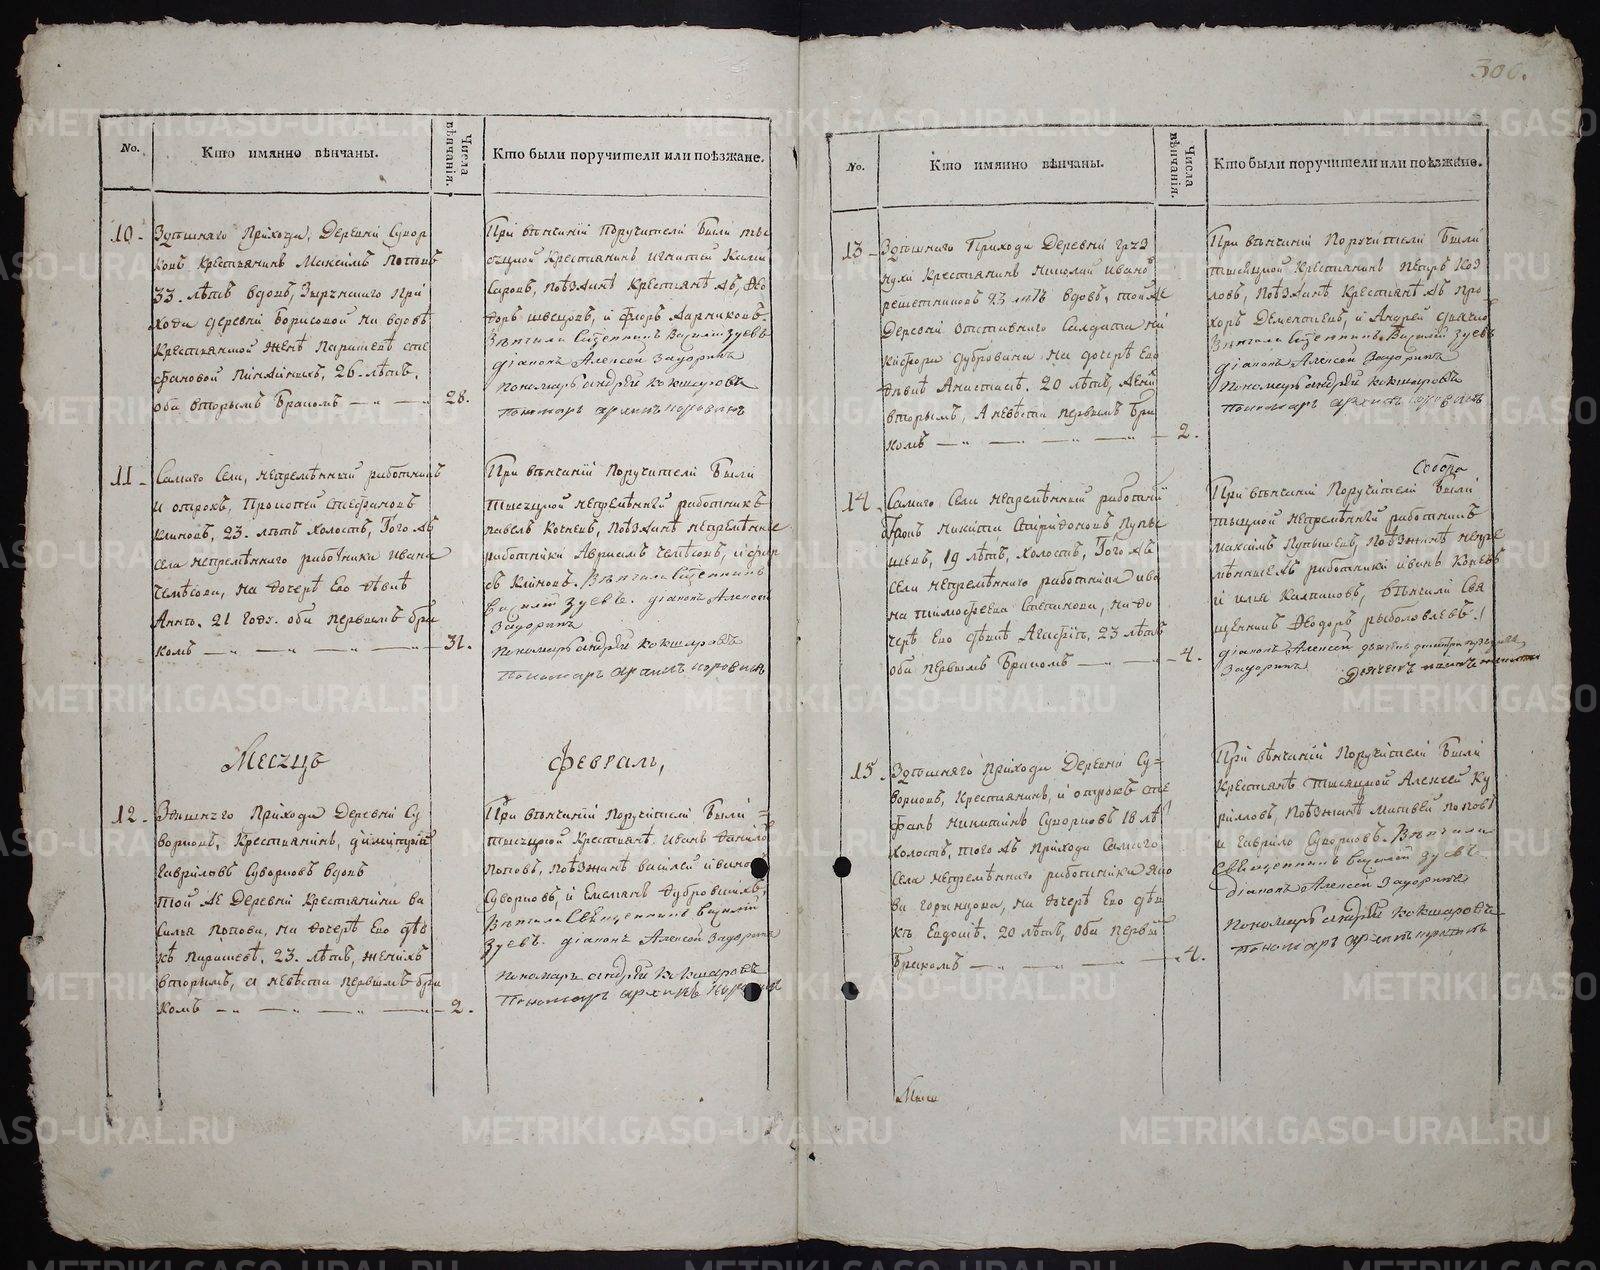 306.
No.
Кто имянно вѣнчаны.
Числа вѣнчанія.
Кто были поручители или поѣзжане.
10.
Здѣшняго Прихода, Деревни Сувор
ковъ Крестьянинъ Максимъ Поповъ
33. лѣтъ вдовъ, При
хода деревни Борисовой на вдовѣ
Крестьянской женѣ Парашевѣ Сте
фановой 26. лѣтъ,
оба вторымъ Бракомъ
28.
При вѣнчаніи Поручители Были тыс
яцкой Крестьянинъ Игнатей
поѣзжанѣ Крестьянѣ жъ, Ѳео
доръ Швецовъ, и Флоръ
Вѣнчали Священникъ Василій Зуевъ
діаконъ Алексей Задоринъ
Пономарь Андрей Кокшаровъ
Пономарь Архипъ Коровинъ
11.
Самаго Села, непремѣнный работникъ
и отрокъ, Стефановъ
Климовъ, 23. лѣтъ холостъ, Того жъ
села непремѣннаго работника Ивана
на дочерѣ Ево дѣвкѣ
Аннѣ. 21 году. оба первымъ бра
комъ
31.
При вѣнчаніи Поручители Были
тысяцкой непремѣнный работникъ
Павелъ Кочневъ, Поѣзжанѣ непремѣнные
работники и
Климовъ. Вѣнчали Священникъ
Василій Зуевъ. діаконъ Алексей
Задоринъ
Пономарь Андрей Кокшаровъ
Пономарь Архипъ Коровинъ
Месяцъ
Февраль,
12.
Здѣшняго Прихода Деревни Су
ворковъ, Крестьянинъ, Димитрій
Гавриловъ Суворковъ вдовъ
той же Деревни Крестьянина Ва
силья Попова, на дочерѣ Ево дѣв
кѣ Парашевѣ. 23. лѣтъ, женихъ
вторымъ, а невѣста первымъ бра
комъ
2.
При вѣнчаніи поручители Были
тысяцкой Крестьянѣ Иванъ Данило
Поповъ, поѣзжанѣ Василей Ивано
Суворковъ, и Емельянъ Дубровинъ
Вѣнчали Священникъ Василій
Зуевъ. діаконъ Алексей Задоринъ
Пономарь Андрей Кокшаровъ
Пономарь Архипъ Коровинъ
No.
Кто имянно вѣнчаны.
Числа вѣнчанія.
Кто были поручители или поѣзжане.
13.
Здѣшняго Прихода Деревни Груз
Крестьянинъ Николай Ивановъ
Решетниковъ 23 лѣтъ вдовъ, той же
Деревни отставнаго Салдата Ни
кифора Дубровина на дочерѣ Ево
дѣвкѣ Анастасіѣ. 20 лѣтъ, жених
вторымъ, а невѣста первымъ бра
комъ
2.
При вѣнчаніи Поручители Были
тысяцкой Крестьянинъ Петръ Коз
ловъ, Поѣзжанѣ Крестьянѣ жъ Про
хоръ Дементьевъ, и Андрей
Вѣнчали Священникъ Василій Зуевъ
діаконъ Алексей Задоринъ
Пономарь Андрей Кокшаровъ
Пономарь Архипъ Коровинъ
14.
Самаго Села непремѣнный работни
Никита Спиридоновъ Пупы
шевъ, 19 лѣтъ, холостъ, Того жъ
Села непремѣннаго работника Ива
на Тимофеева Степанова, на до
черѣ Ево дѣвкѣ Агафіѣ, 23 лѣтъ
оба первымъ Бракомъ
4.
Собора
При вѣнчаніи Поручители Были
тысяцкой непремѣнный работникъ
Максимъ Пупышевъ, Поѣзжанѣ непре
мѣнные жъ работники Иванъ
и Илья Калининовъ, Вѣнчали Свя
щенникъ Ѳедоръ Рыболовлевъ
діаконъ Алексей
Задоринъ
15.
Здѣшняго Прихода Деревни Су=
ворковъ, Крестьянинъ, и отрокъ Сте
фанъ Никитинъ Суворковъ 18 лѣт
холостъ, того жъ Прихода Самаго
Села непремѣннаго работника Яко
ва Горинцова, на дочерѣ Ево дѣв
кѣ Евдокіѣ. 20 лѣтъ, оба первый
Бракомъ
4.
При вѣнчаніи Поручители Были
Крестьянѣ тысяцкой Алексей Ку
рилловъ, Поѣзжанѣ Матвей Поповъ
и Гаврило Суворковъ. Вѣнчали
Священникъ Василій Зуевъ
діаконъ Алексей Задоринъ
Пономарь Андрей Кокшаровъ
Пономарь Архипъ Коровинъ
METRIKI.GASO-URAL.RU